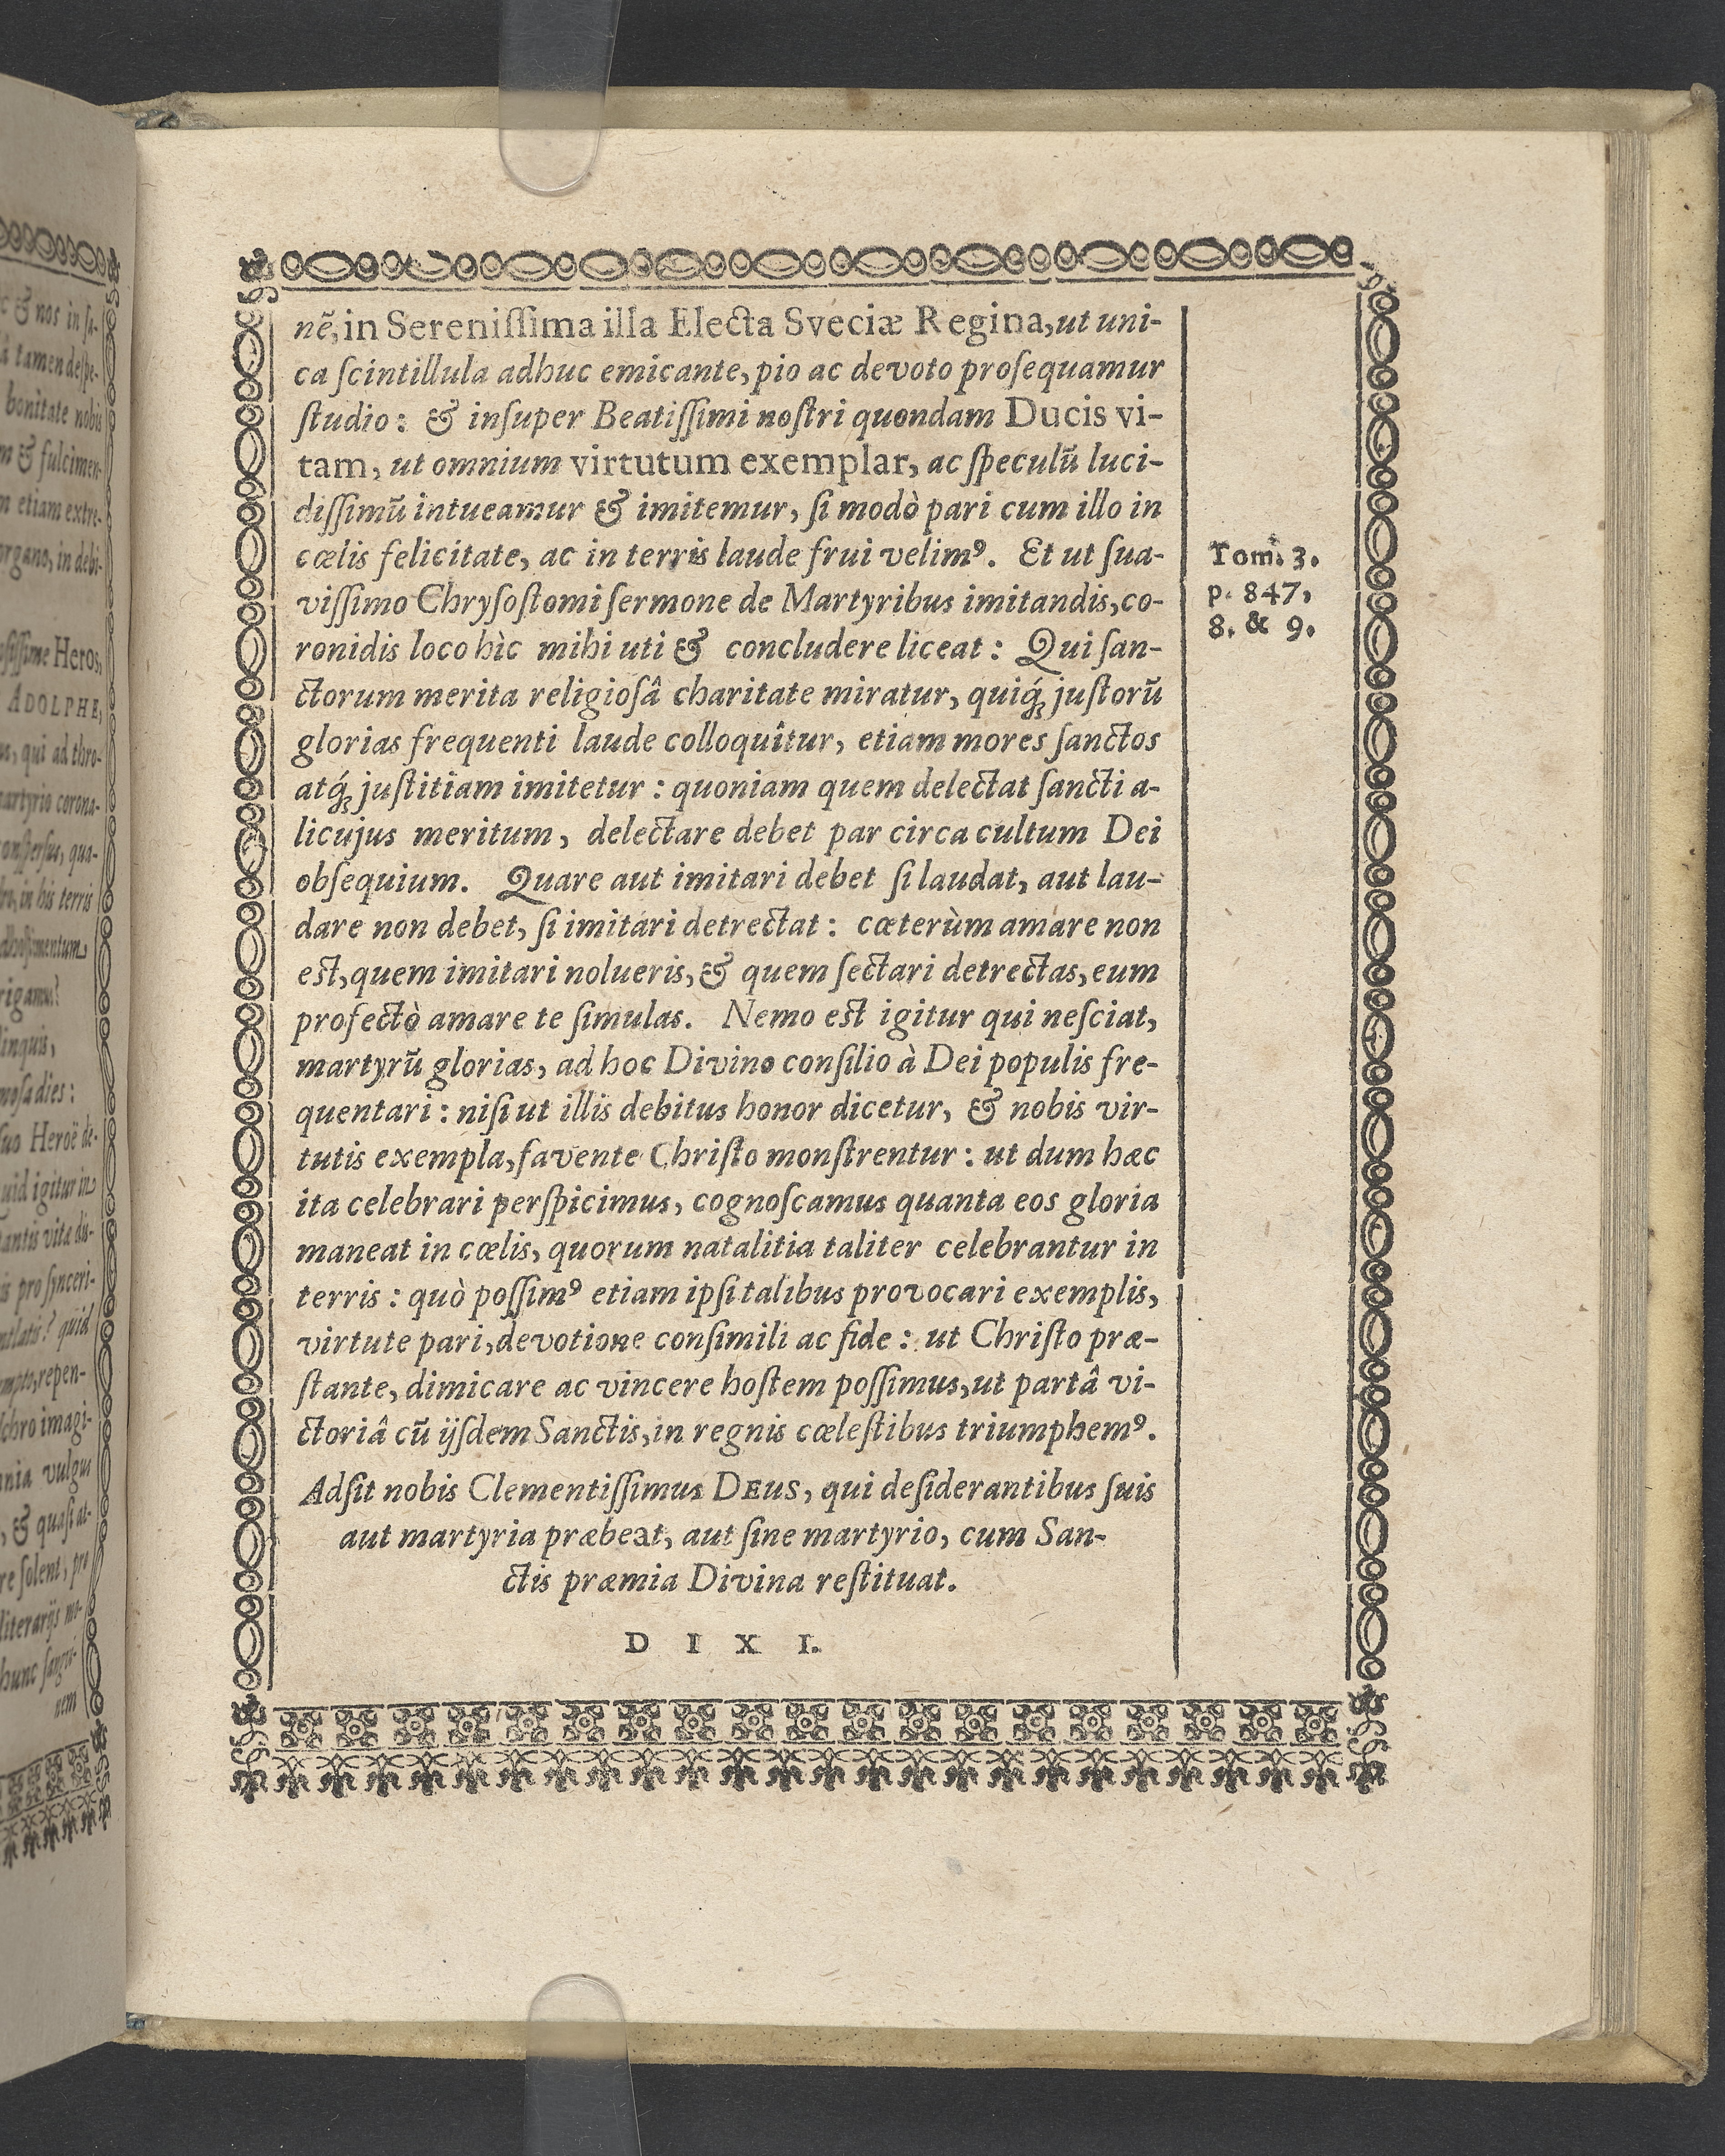 nẽ, in Sereniſſima illa Electa Sveciæ Regina, ut uni-
ca ſcintillula adhuc emicante, pio ac devoto proſequamur
ſtudio: & inſuper Beatiſſimi noſtri quondam Ducis vi-
tam, ut omnium virtutum exemplar, ac ſpeculũ luci-
diſſimũ intueamur & imitemur, ſi modò pari cum illo in
cœlis felicitate, ac in terris laude frui velimꝰ. Et ut ſua-
viſſimo Chryſoſtomi ſermone de Martyribus imitandis, co-
ronidis loco hìc mihi uti & concludere liceat: Qui ſan-
ctorum merita religioſâ charitate miratur, quiq́ꝫ juſtorũ
glorias frequenti laude colloquîtur, etiam mores ſanctos
atq́ꝫ juſtitiam imitetur: quoniam quem delectat ſancti a-
licujus meritum, delectare debet par circa cultum Dei
obſequium. Quare aut imitari debet ſi laudat, aut lau-
dare non debet, ſi imitari detrectat: cæterùm amare non
est, quem imitari nolueris, & quem ſectari detrectas, eum
profectò amare te ſimulas. Nemo est igitur qui neſciat,
martyrũ glorias, ad hoc Divino conſilio à Dei populis fre-
quentari: niſi ut illis debitus honor dicetur, & nobis vir-
tutis exempla, favente Chriſto monſtrentur: ut dum hæc
ita celebrari perſpicimus, cognoſcamus quanta eos gloria
maneat in cœlis, quorum natalitia taliter celebrantur in
terris: quò poſſimꝰ etiam ipſi talibus provocari exemplis,
virtute pari, devotione conſimili ac fide: ut Chriſto præ-
ſtante, dimicare ac vincere hoſtem poſſimus, ut partâ vi-
ctoriâ cũ ijſdem Sanctis, in regnis cœleſtibus triumphemꝰ.
Adſit nobis Clementiſſimus DEUS, qui deſiderantibus ſuis
aut martyria præbeat, aut ſine martyrio, cum San-
ctis præmia Divina reſtituat.
D I X I.
Tom. 3.
p. 847,
8. & 9.
& nos in ſa-
tamen deſpe-
bonitate nobis
& fulcimen-
etiam extre-
organo, in debi-
Heros,
ADOLPHE,
qui ad thro-
martyrio corona-
qua-
in his terris
linquis,
dies:
ſuo Heroë de-
igitur in
vita diſ-
pro ſynceri-
quid
repen-
imagi-
vulgus
& quaſi at-
ſolent, pro
literarijs mo-
hunc ſangui-
nem